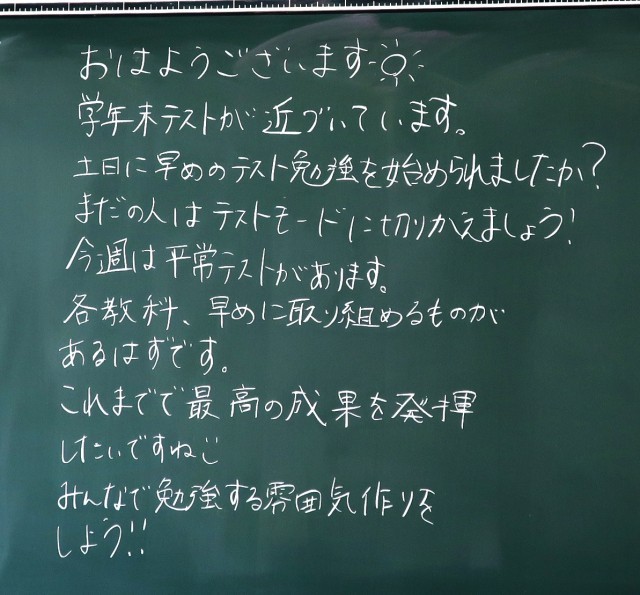 おはようございます
学年末テストが近づいています。
土日に早めのテスト勉強を始められましたか?
まだの人はテストモードに切りかえましょう!
今週は平常テストがあります。
各教科、早めに取り組めるものが
あるはずです。
これまでで最高の成果を発揮
したいですね
みんなで勉強する雰囲気作りを
しよう!!